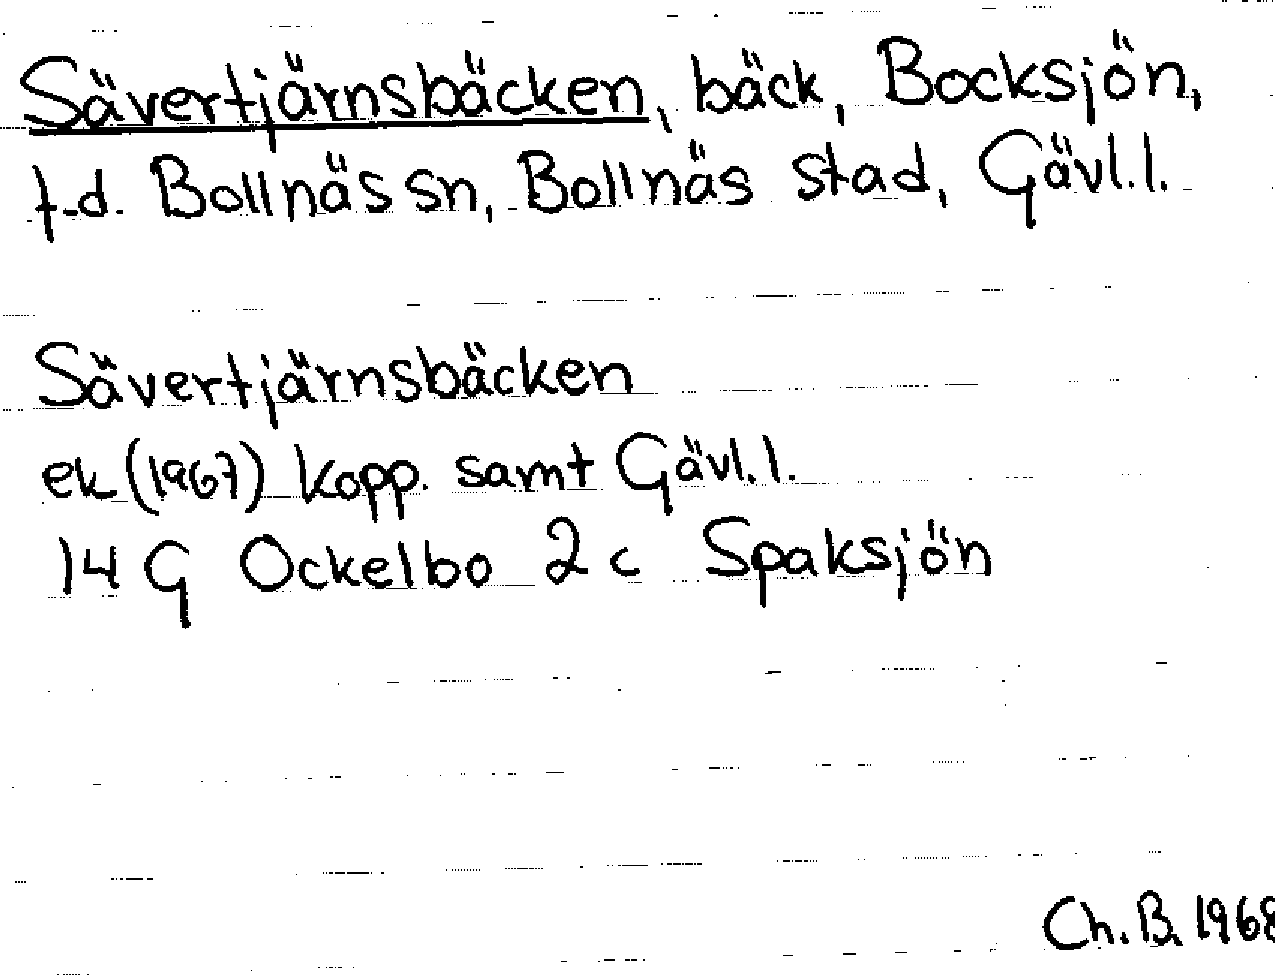 Sävertjärnsbäcken, bäck, Bocksjön,
f.d. Bollnäs sn, Bollnäs stad, Gävl.l.
Sävertjärnsbäcken
ek (1967) Kopp. samt Gävl.l.
14 G Ockelbo 2 c Spaksjön
Ch.B. 1968